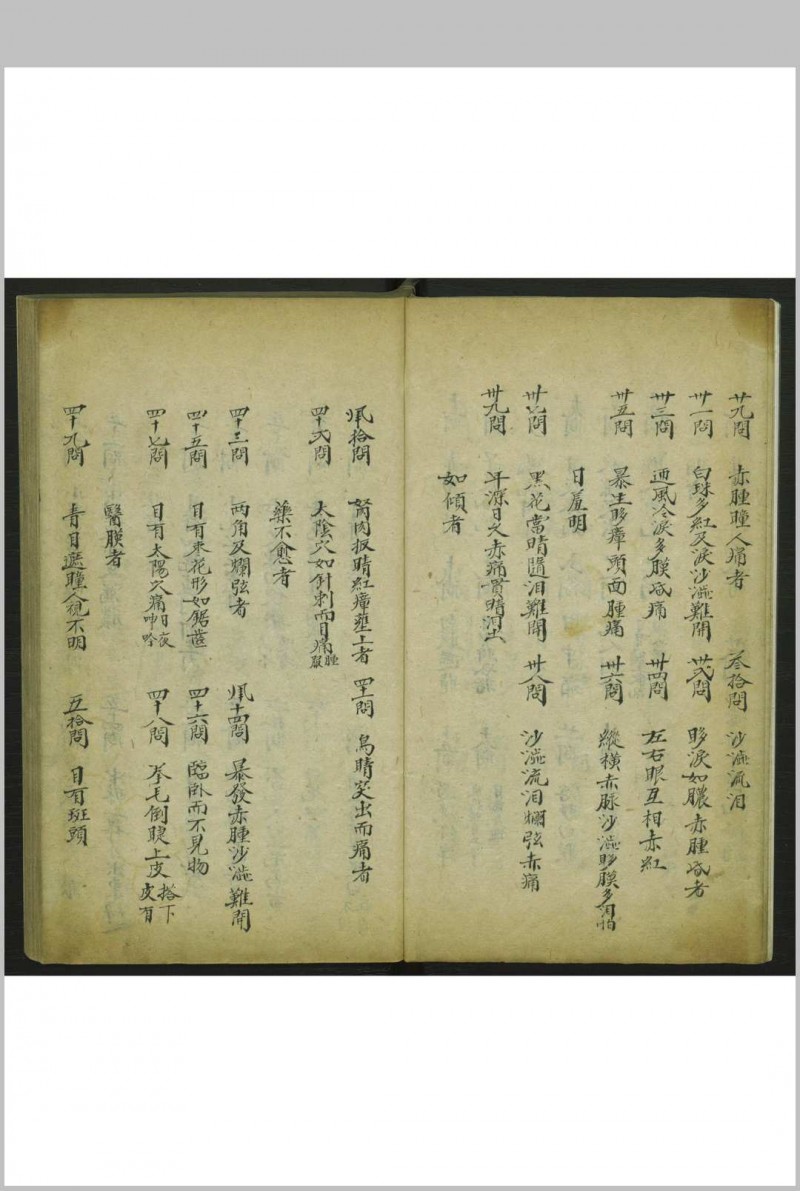 廿九問 赤腫瞳人痛者 叁拾問 沙澁流泪
卅一問 白珠多紅及淚沙澁難開 卅弍問 眵淚如膿赤腫眃者
卅三問 迎風冷淚多膜眃痛 卅四問 左右眼互相赤紅
卅五問 暴生眵瘴頭面腫痛 卅六問 縱橫赤脉沙澁眵膜多泪怕
日羞明
卅七問 黑花當睛隨泪難開 卅八問 沙澁流泪爛弦赤痛
卅九問 年深日久赤痛貫睛泪出
如傾者
肆拾問 胬肉扳睛紅瘴壅上者 四十一問 烏睛突出而痛者
四十弍問 太陰穴如針刺而目痛腫服
藥不愈者
四十三問 两角及爛弦者 肆十四問 暴發赤腫沙澁難開
四十五問 目有朿花形如鋸齒 四十六問 臨卧而不見物
四十七問 目有太陽穴痛日夜呻吟 四十八問 拳毛倒睫上皮搭下皮有
醫膜者
四十九問 青目遮瞳人視不明 五拾問 目有斑頭